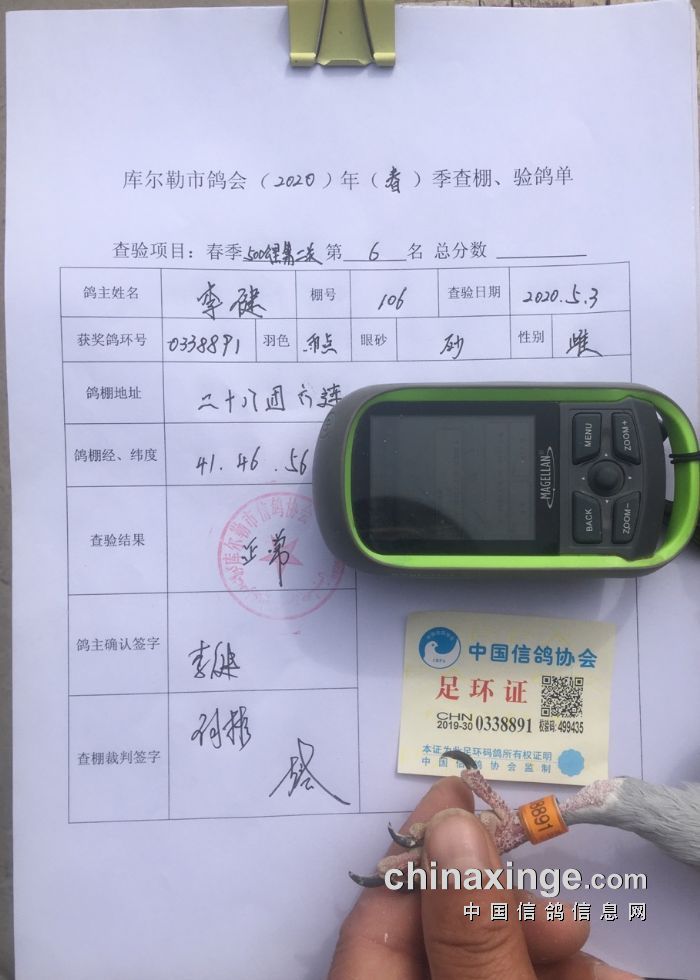 库尔勒市鸽会(2020)年(春)季查棚、验鸽单
查验项目：春季500公里第二关 第 6 名 总分数
鸽主姓名 李健 棚号 106 查验日期 2020.5.3
获奖鸽环号 0338891 羽色 雨点 眼砂 砂 性别 雌
鸽棚地址 二十八团六连
鸽棚经、纬度 41.46.56
查验结果 正常
库尔勒市信鸽协会
鸽主确认签字 李健
查棚裁判签字
MAGELLAN
MENU
ZOOM+
BACK
ZOOM-
中国信鸽协会
足环证
CHN
2019-30 0338891 权验码:499435
本证为此足环码鸽所有权证明
中国信鸽协会监制
8891
chinaxinge.com
中国信鸽信息网